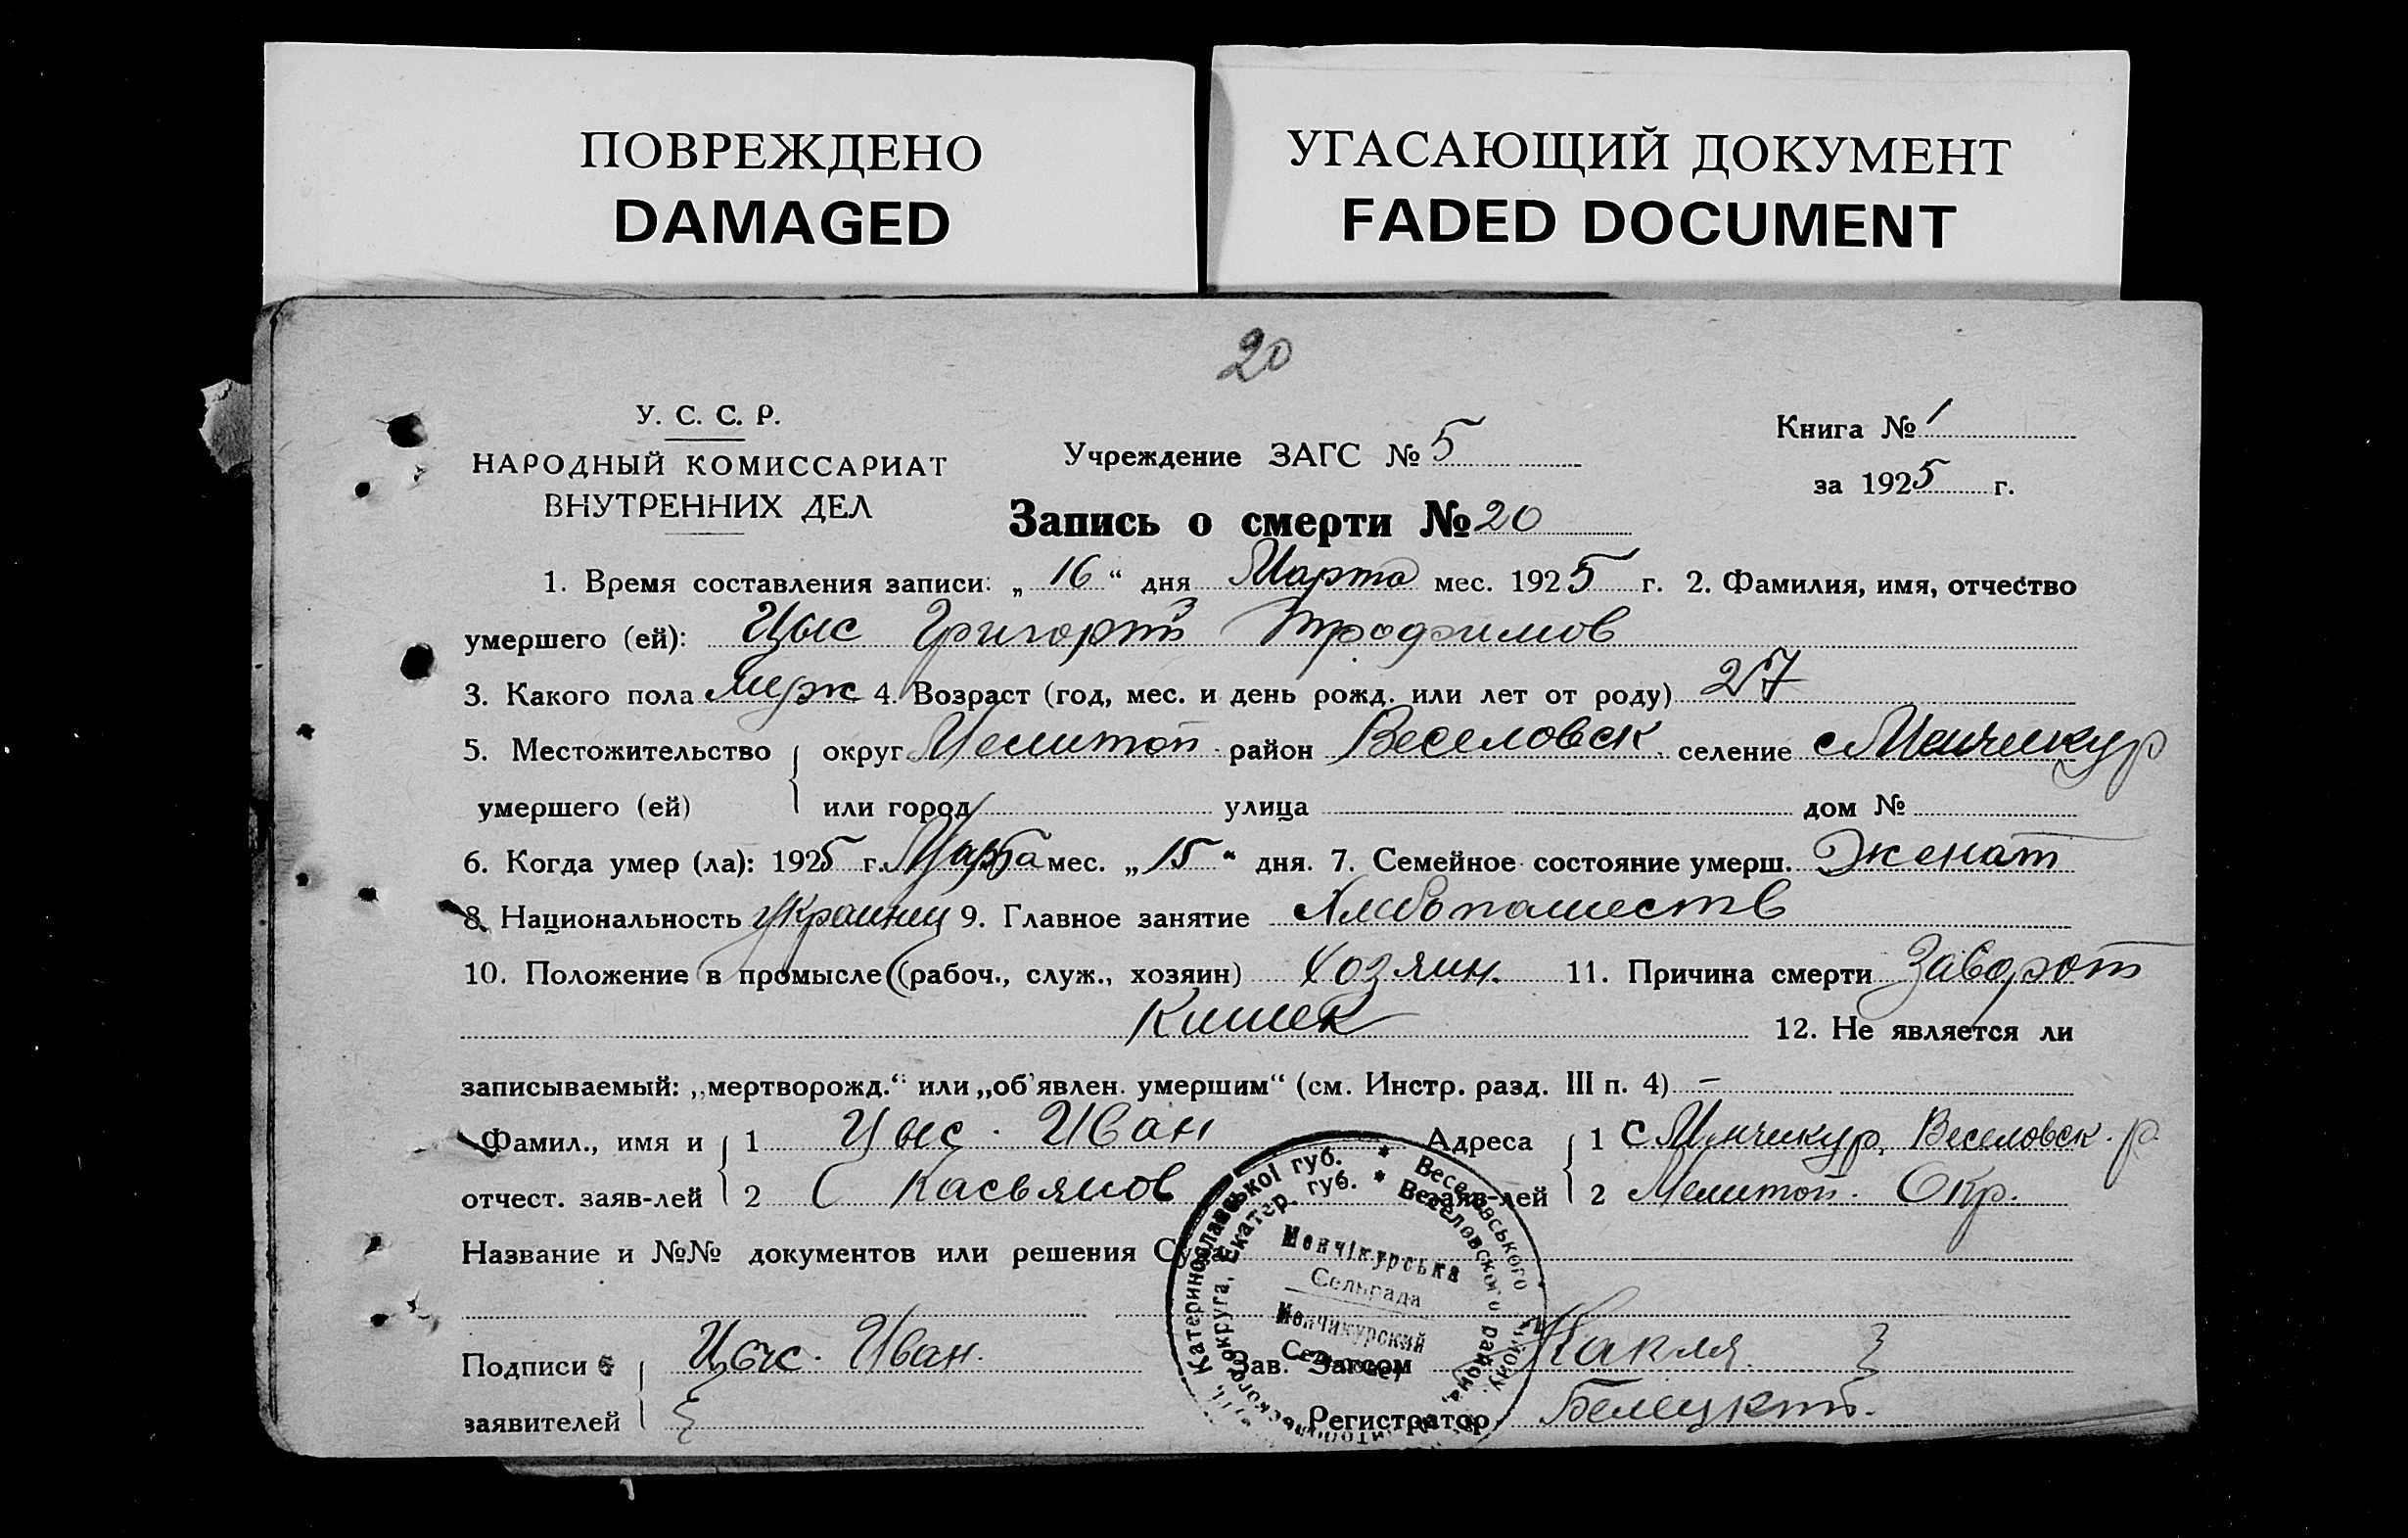 ПОВРЕЖДЕНО
DAMAGED
УГАСАЮЩИЙ ДОКУМЕНТ
FADED DOCUMENT
20
У. С. С. Р.
НАРОДНЫЙ КОМИССАРИАТ
ВНУТРЕННИХ ДЕЛ
Учреждение ЗАГС № 5
Книга № 1
за 1925 г.
Запись о смерти № 20
1. Время составления записи: „16“ дня Марта мес. 1925 г. 2. Фамилия, имя, отчество
умершего (ей): Цыс Григорій Трофимов
3. Какого пола муж 4. Возраст (год, мес. и день рожд. или лет от роду) 27
5. Местожительство округ Мелитоп. район Веселовск. селение с Менчикур
умершего (ей) или город улица дом №
6. Когда умер (ла): 1925 г. Марта мес. „15“ дня. 7. Семейное состояние умерш. Женат
8. Национальность украинец 9. Главное занятие Хлебопашеств
10. Положение в промысле (рабоч., служ., хозяин) хозяин. 11. Причина смерти Заворот
Кишек 12. Не является ли
записываемый: „мертворожд.“ или „об'явлен. умершим“ (см. Инстр. разд. III п. 4) –
Фамил., имя и 1 Цыс. Иван Адреса 1 С Менчикур, Веселовск. р.
отчест. заяв-лей 2 Касьянов заяв-лей 2 Мелитоп. Окр.
Название и №№ документов или решения
Катеринославської губ. * Веселовського району
округа, Екатер. губ. * Веселовского района
Менчікурська
Сельрада
Менчикурский
Сельсовет
Подписи Цыс. Иван. Зав. Загсом
заявителей Регистратор Белецкій.